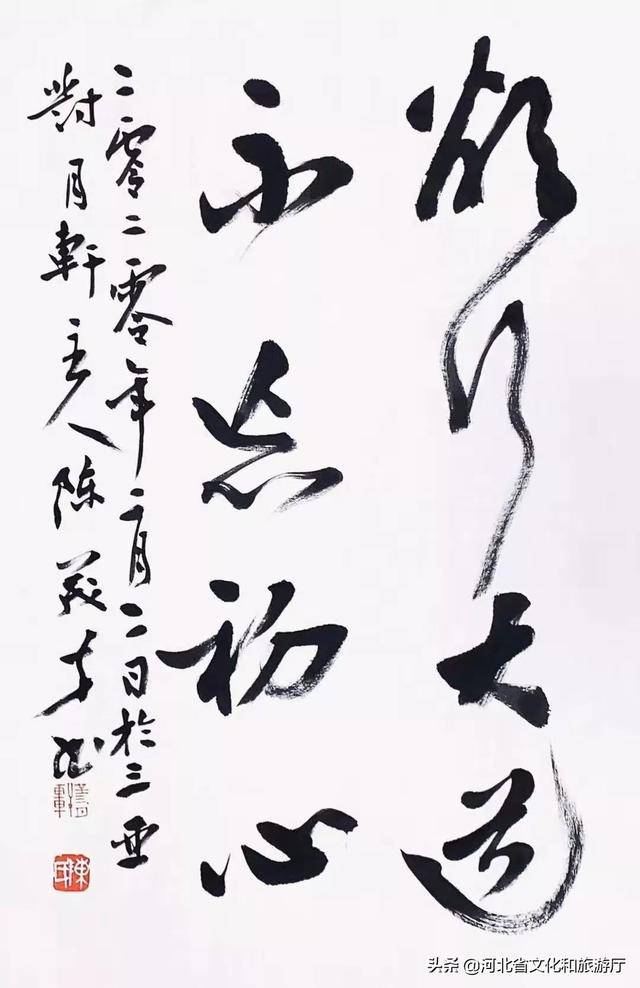 欲行大道
不忘初心
二零二零年二月二日於三亚
對月軒主人陈茂才书
头条 @河北省文化和旅游厅